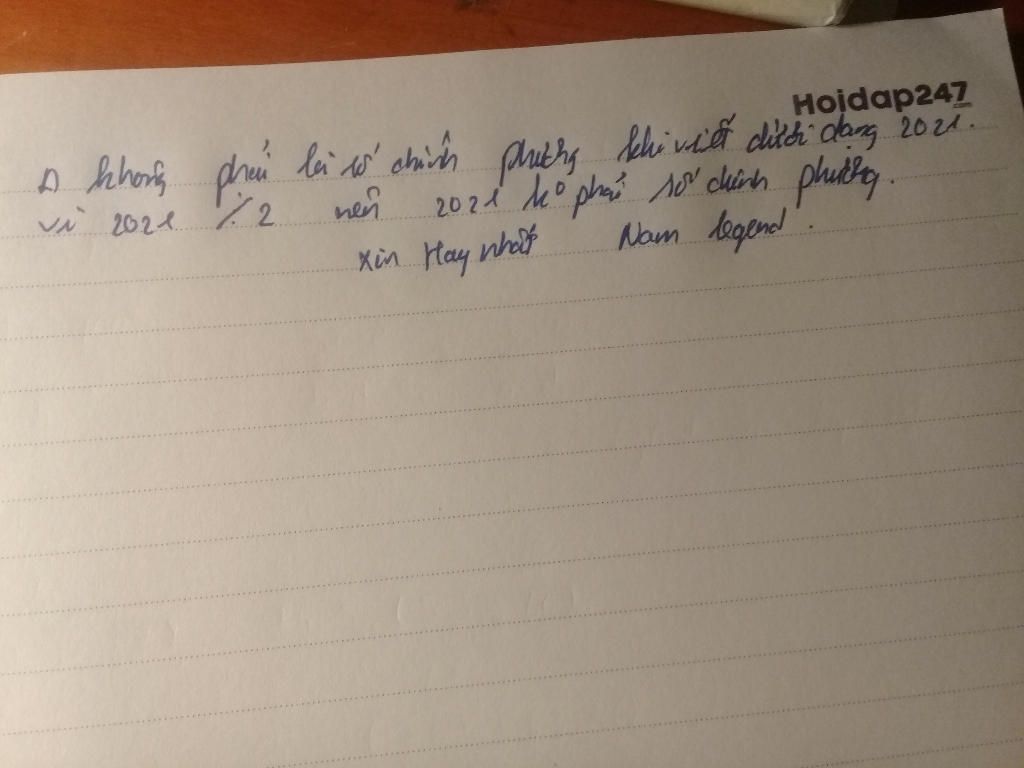 Hoidap247
.com
D không phải là số chính phương khi viết dưới dạng 2021.
vì 2021 ⋮̸ 2 nên 2021 k° phải số chính phương.
xin Hay nhất Nam legend.